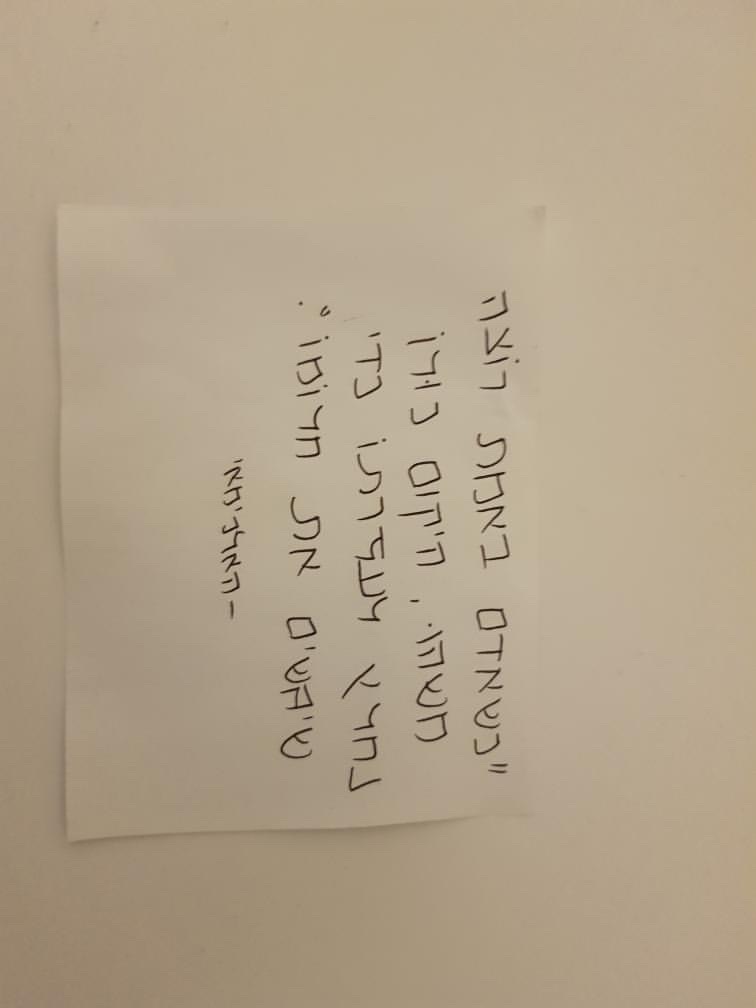 "כשאדם באמת רוצה
משהו, היקום כולו
נחלץ לעזרתו כדי
שיגשים את חלומו".
-האלכימאי